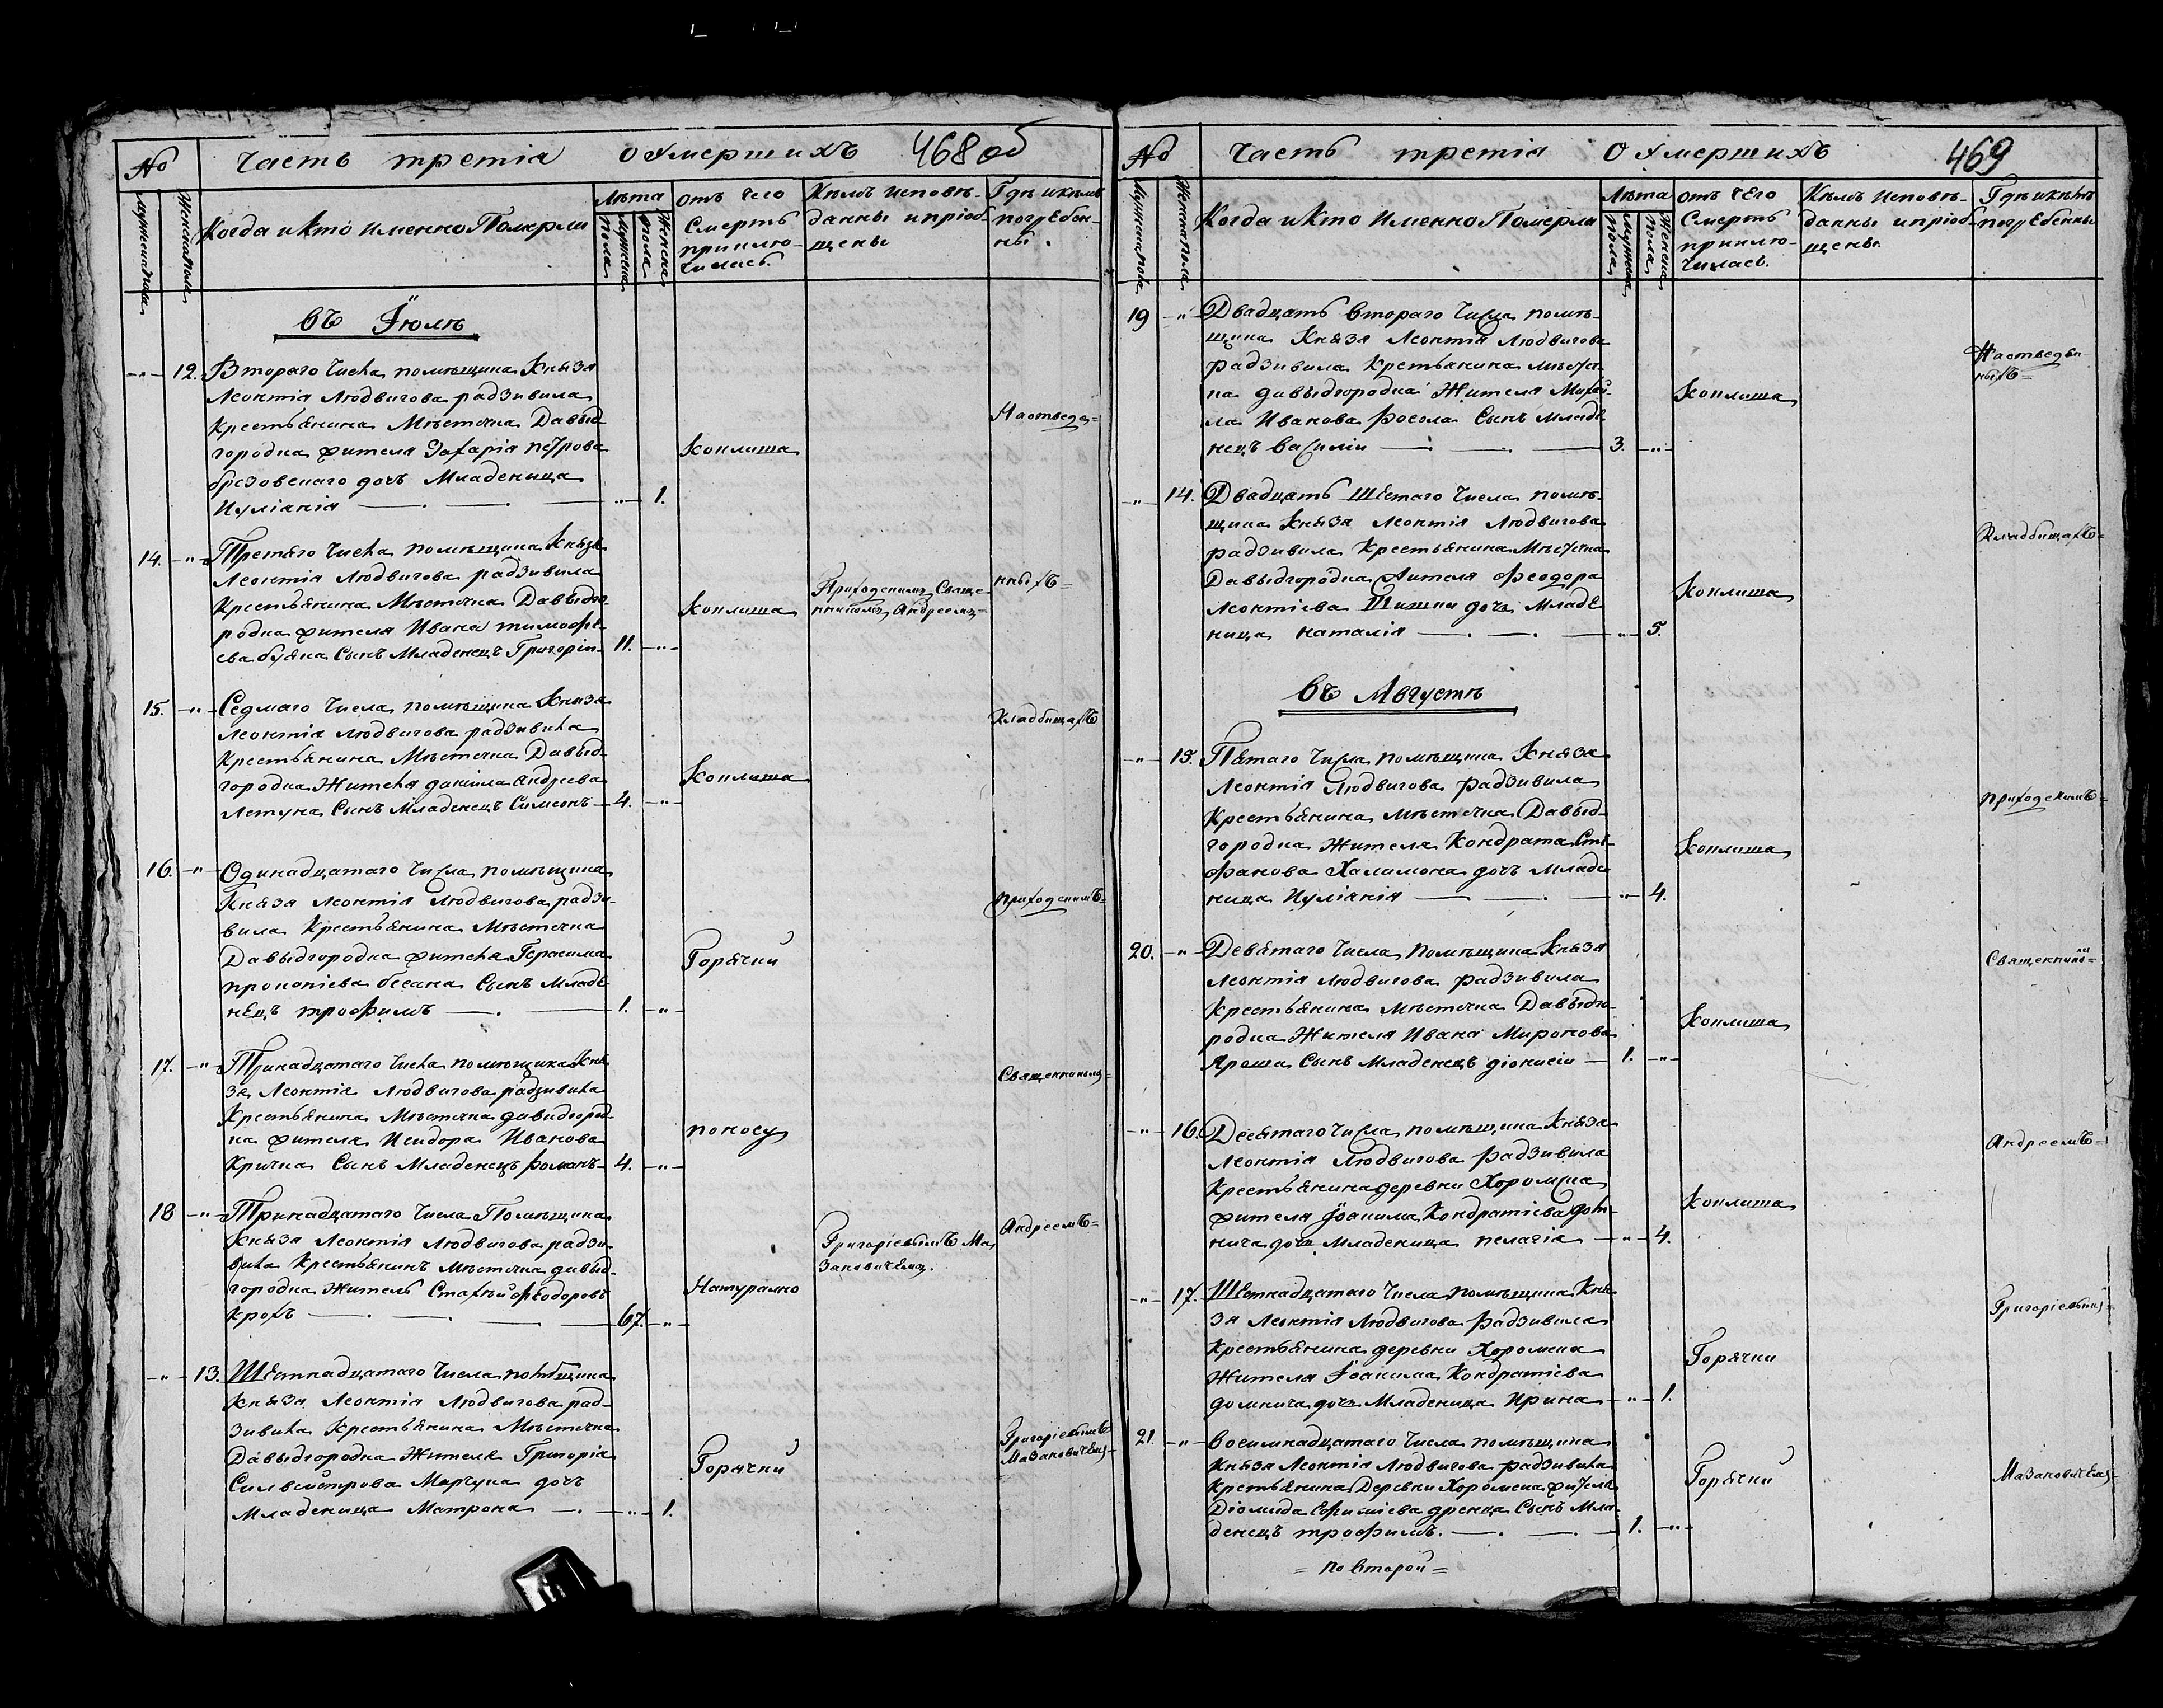 № Часть третія О Умершихъ 468 об
Мужеска пола
Женска пола
Когда и кто именно Померли
Лѣта
Мужеска пола
Женска пола
отъ чего
Смерть
приклю-
чилась.
Кѣмъ исповѣ-
даны и пріоб-
щены
Гдѣ и кѣмъ
погребен-
ны.
въ Іюлѣ
-"- 12. Втораго числа помѣщика Князя
Леонтія Людвигова радзивила
Крестьянина Мѣстечка Давыд
городка жителя Захарія петрова
брезовскаго дочь Младеница
Иуліанія -"- 1.
Коклиша
14. -"- Третяго числа помѣщика Князя
Леонтія Людвигова радзивила
Крестьянина Мѣстечка Давыдго-
родка жителя Ивана тимофе-
ева буяка Сынъ Младенецъ Григорій 11. -"-
Коклиша
15. -"- Седмаго числа помѣщика Князя
Леонтія Людвигова радзивила
Крестьянина Мѣстечка Давыд-
городка Жителя даніила андреева
Летуна Сынъ Младенецъ Симеонъ 4. -"-
Коклиша
16. -"- Одинадцатаго числа помѣщика
Князя Леонтія Людвигова радзи-
вила Крестьянина Мѣстечка
Давыдгородка жителя Герасима
прокопіева бесана Сынъ Младе
нецъ трофимъ 1. -"-
Горячки
17. -"- Тринадцатаго числа помѣщика Кня
зя Леонтія Людвигова радзивила
Крестьянина Мѣстечка давидгород-
ка жителя Исидора Иванова
Кричка Сынъ Младенецъ романъ 4. -"-
поносу
18 -"- Тринадцатаго числа Помѣщика
Князя Леонтія Людвигова радзи-
вила Крестьянинъ Мѣстечка давыд-
городка Житель Стахѣй феодоровъ
Крохъ 67. -"-
Натурално
-"- 13. Шестнадцатаго числа помѣщика
Князя Леонтія Людвигова рад-
зивила Крестьянина Мѣстечка
Давыдгородка Жителя Григорія
Силвестрова Марчука дочь
Младеница Матрона -"- 1.
Горячки
Приходскимъ Свяще-
нникомъ Андреемъ
Григоріевымъ Ма
зановичемъ.
На отведе=
нныхъ=
Кладбищахъ
приходскимъ=
Священникомъ=
Андреемъ=
Григоріевымъ
Мазановичемъ=
№ Часть третія О Умершихъ 469
Мужеска пола
Женска пола
Когда и Кто Именно Померли
Лѣта
Мужеска пола
Женска пола
отъ чего
Смерть
приклю-
чилась.
Кѣмъ исповѣ-
даны и пріоб-
щены.
Гдѣ и кѣмъ
погребенны
19 -"- Двадцать втораго числа помѣ-
щика Князя Леонтія Людвигова
радзивила Крестьянина мѣстеч-
ка давыдгородка Жителя Михай-
ла Иванова росола Сынъ младе
нецъ василій 3. -"-
Коклиша
-"- 14. Двадцать Шестаго числа помѣ-
щика Князя Леонтія Людвигова
радзивила Крестьянина Мѣстечка
Давыдгородка жителя феодора
Леонтіева Шишки дочь Младе
ница наталія -"- 5.
Коклиша
въ Августѣ
-"- 15. Пятаго числа помѣщика Князя
Леонтія Людвигова радзивила
Крестьянина мѣстечка Давыд-
городка Жителя Кондрата Сте-
фанова Халимона дочь младе
ница Иуліанія -"- 4.
Коклиша
20. -"- Девятаго числа помѣщика Князя
Леонтія Людвигова радзивила
Крестьянина Мѣстечка Давыдго-
родка Жителя Ивана Миронова
Яроша Сынъ Младенецъ діонисій 1. -"-
Коклиша
-"- 16. Десятаго числа помѣщика Князя
Леонтія Людвигова радзивила
Крестьянина деревни Хоромска
жителя Іоакима Кондратіева дом-
нича дочь Младеница пелагія -"- 4.
Коклиша
-"- 17. Шестнадцатаго числа помѣщика Кня
зя Леонтія Людвигова радзивила
Крестьянина деревни Хоромска
Жителя Іоакима Кондратіева
домнича дочь Младеница Ирина -"- 1.
Горячки
21. -"- восимнадцатаго числа помѣщика
Князя Леонтія Людвигова радзивила
Крестьянина Деревни Хоромска жителя
Діомида Ефиміева дренца Сынъ Мла
денецъ трофимъ. 1. -"-
Горячки
На отведен
ныхъ=
Кладбищахъ=
приходскимъ=
Священнико=
Андреемъ=
Григоріевымъ=
Мазановичемъ=
= по второй =